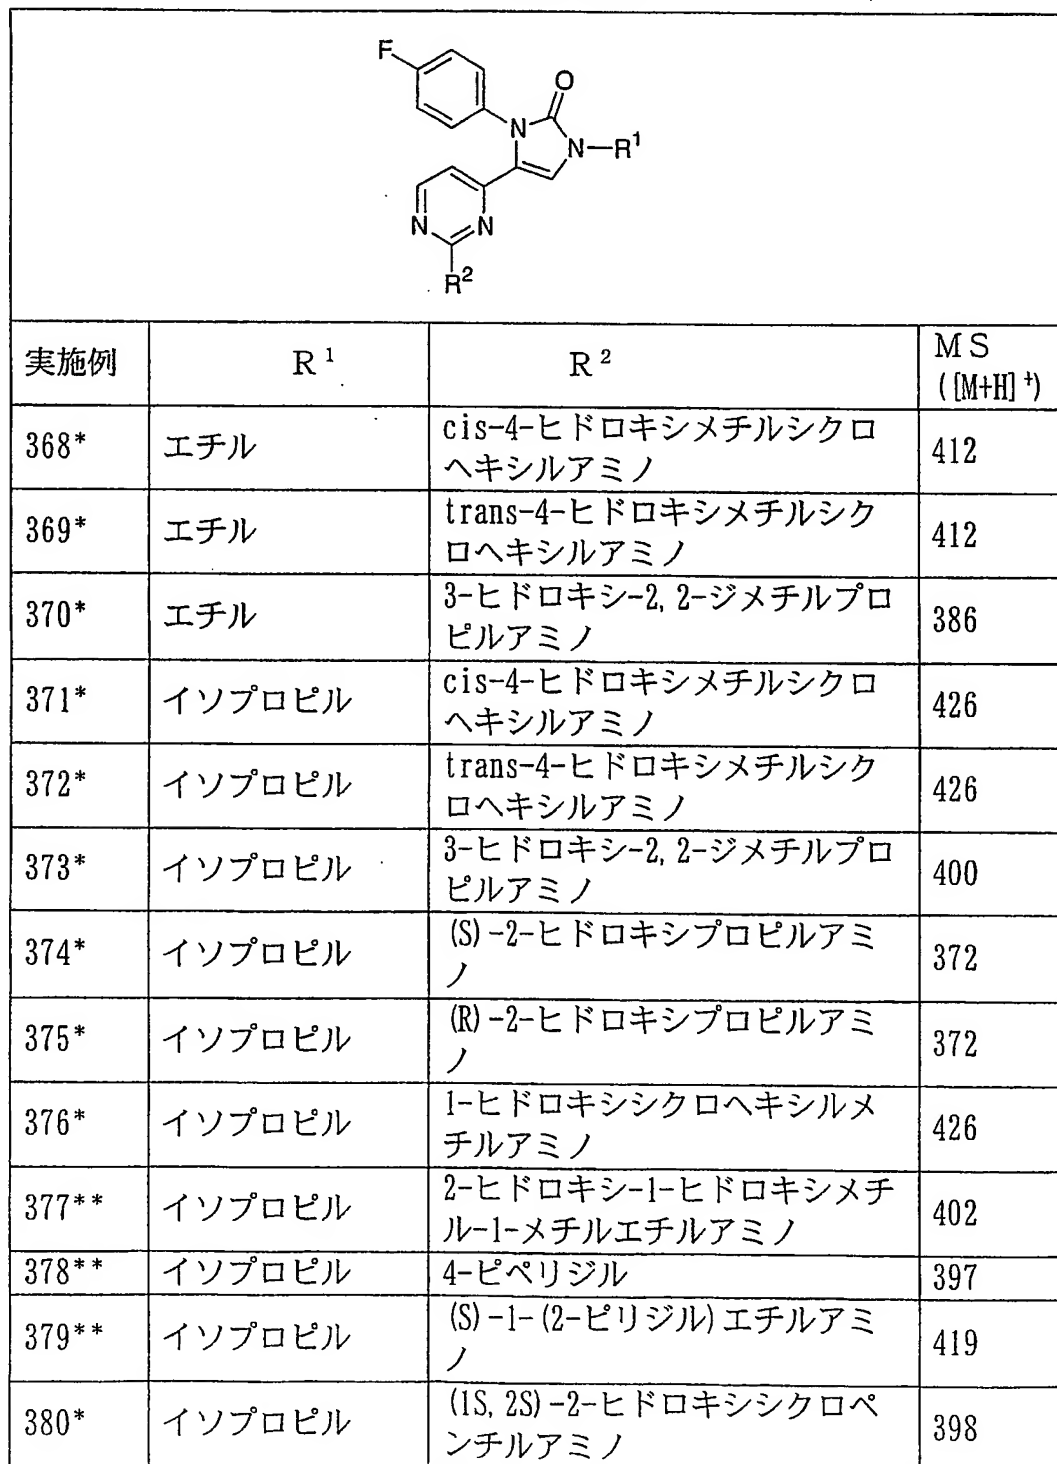 F
O
N
N—R¹
N
N
R²
実施例
R¹
R²
MS
([M+H]⁺)
368*
エチル
cis-4-ヒドロキシメチルシクロ
ヘキシルアミノ
412
369*
エチル
trans-4-ヒドロキシメチルシク
ロヘキシルアミノ
412
370*
エチル
3-ヒドロキシ-2,2-ジメチルプロ
ピルアミノ
386
371*
イソプロピル
cis-4-ヒドロキシメチルシクロ
ヘキシルアミノ
426
372*
イソプロピル
trans-4-ヒドロキシメチルシク
ロヘキシルアミノ
426
373*
イソプロピル
3-ヒドロキシ-2,2-ジメチルプロ
ピルアミノ
400
374*
イソプロピル
(S)-2-ヒドロキシプロピルアミ
ノ
372
375*
イソプロピル
(R)-2-ヒドロキシプロピルアミ
ノ
372
376*
イソプロピル
1-ヒドロキシシクロヘキシルメ
チルアミノ
426
377**
イソプロピル
2-ヒドロキシ-1-ヒドロキシメチ
ル-1-メチルエチルアミノ
402
378**
イソプロピル
4-ピペリジル
397
379**
イソプロピル
(S)-1-(2-ピリジル)エチルアミ
ノ
419
380*
イソプロピル
(1S,2S)-2-ヒドロキシシクロペ
ンチルアミノ
398